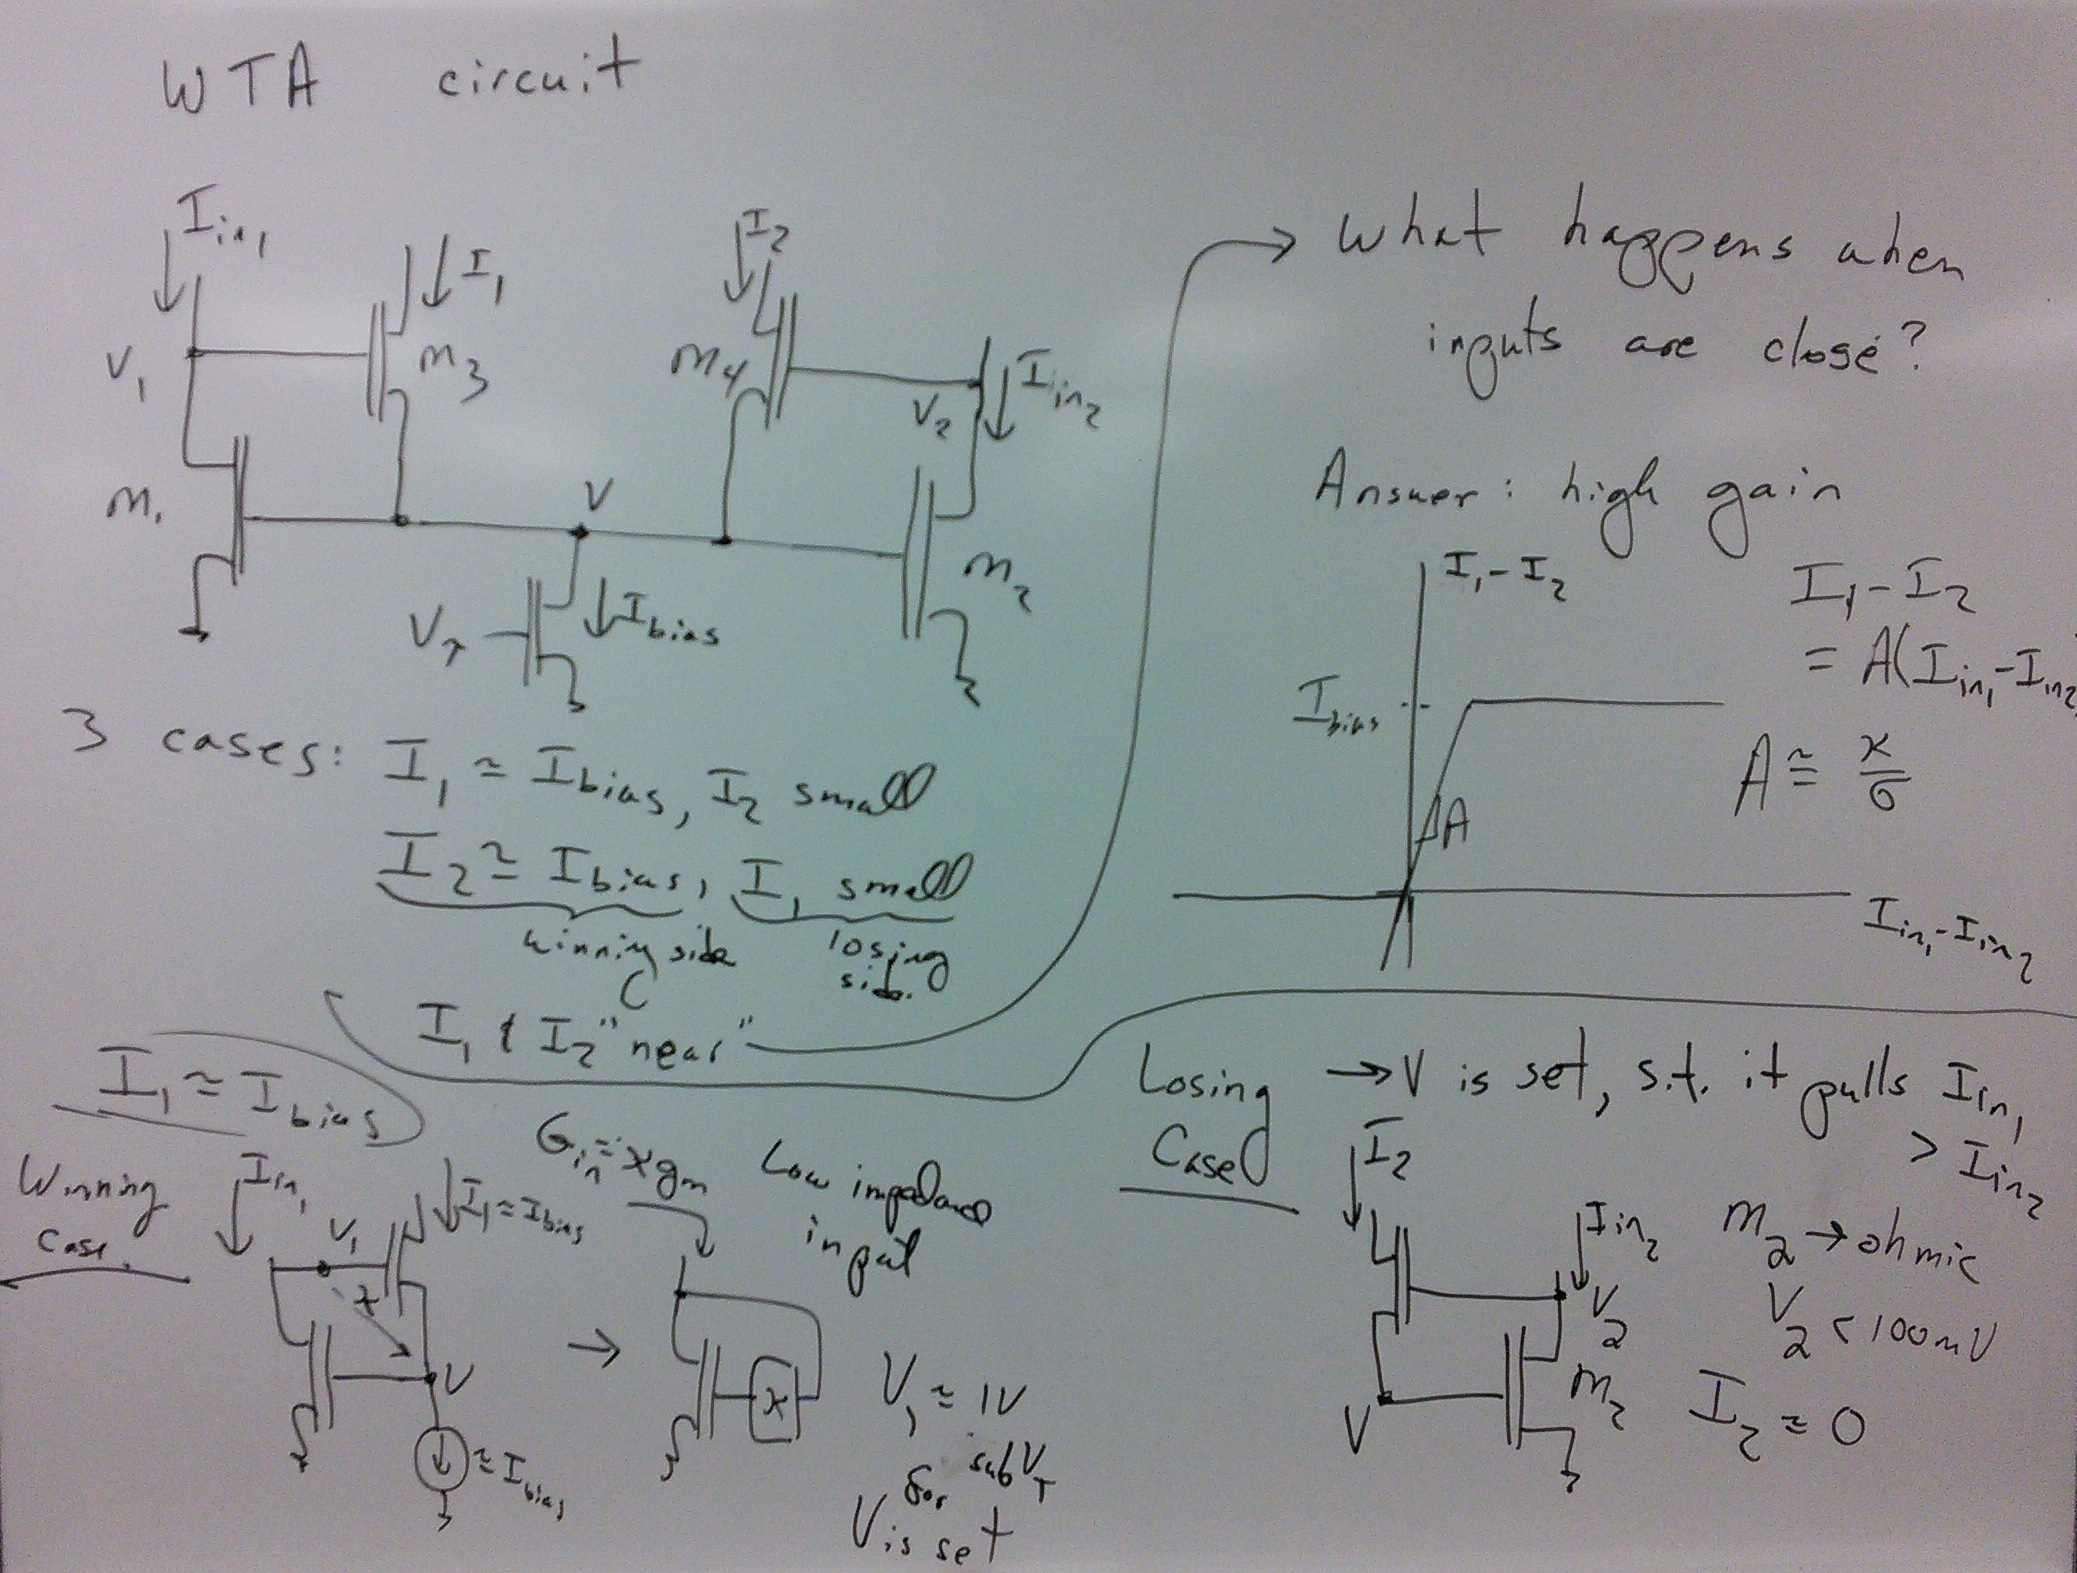 WTA circuit
I_in1
I_1
V_1
M_3
M_1
I_2
M_4
V_2
I_in2
V
M_2
V_τ
I_bias
3 cases: I_1 ≈ I_bias, I_2 small
I_2 ≈ I_bias, I_1 small
winning side
losing side
I_1 & I_2 "near"
→ What happens when
inputs are close?
Answer: high gain
I_1 - I_2
I_bias
A
I_in1 - I_in2
I_1 - I_2
= A(I_in1 - I_in2)
A ≅ κ/σ
I_1 ≈ I_bias
Winning
case.
I_in1
V_1
I_1 ≈ I_bias
κ
V
≈ I_bias
→
G_in ≈ κg_m
Low impedance
input
κ
V_1 ≈ 1V
for subV_T
V is set
Losing
Case
→ V is set, s.t. it pulls I_in1
> I_in2
I_2
I_in2
V_2
M_2
V
M_2 → ohmic
V_2 < 100mV
I_2 ≈ 0